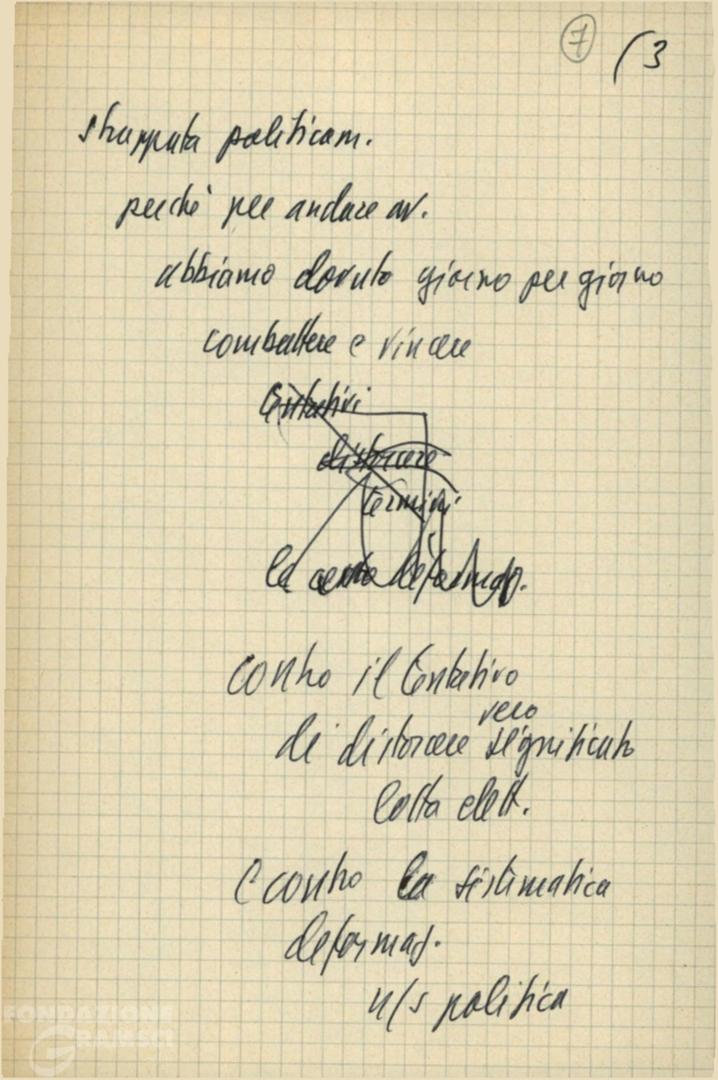 7 (3
strappata politicam.
perchè per andare av.
abbiamo dovuto giorno per giorno
combattere e vincere
tentativi
distorcere
termini
la deformaz.
contro il tentativo
vero
di distorcere significato
lotta elett.
e contro la sistematica
deformaz.
n/s politica
FONDAZIONE
GRAMSCI